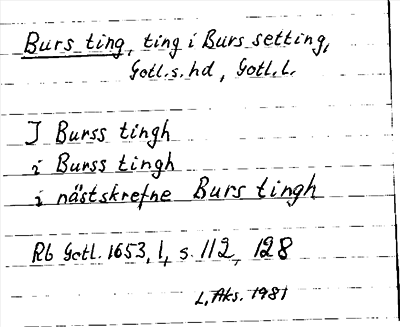 Burs ting, ting i Burs setting,
Gotl. s. hd, Gotl. l.
I Burss tingh
i Burss tingh
i nästskrefne Burs tingh
Rb Gotl. 1653, l, s. 112, 128
L. Aks. 1981